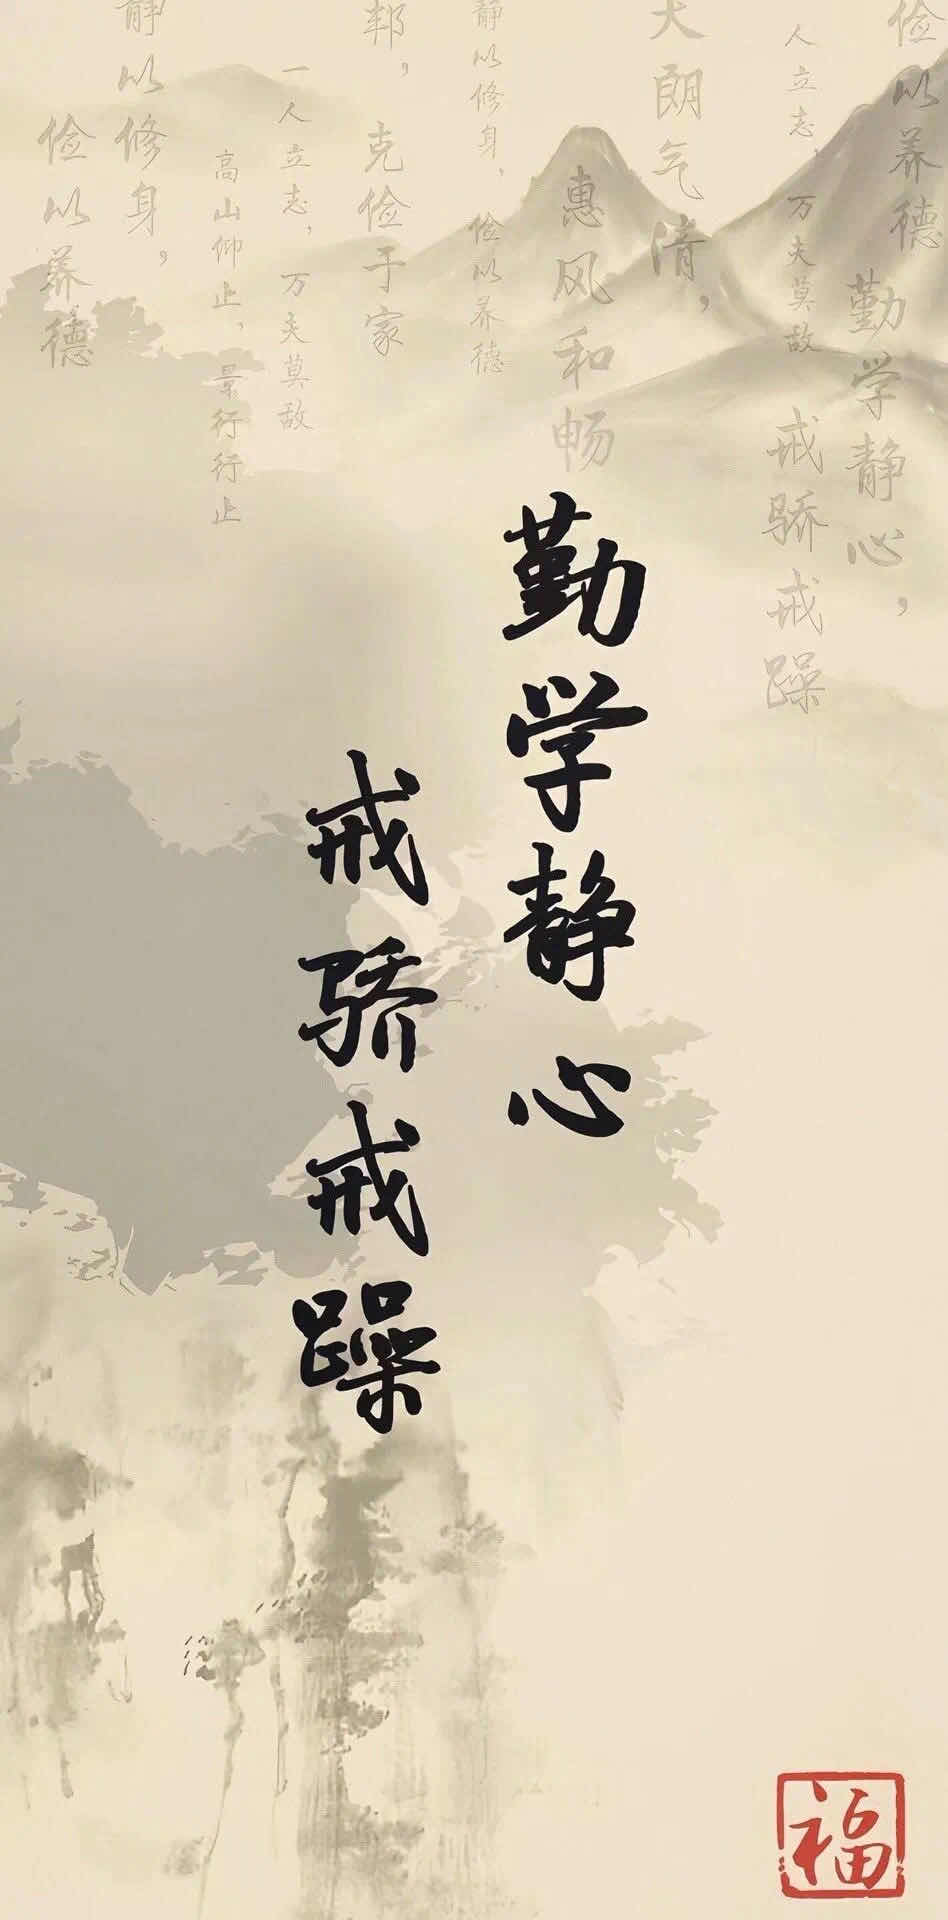 俭以养德
勤学静心，
人立志，万夫莫敌
戒骄戒躁
天朗气清，
惠风和畅
静以修身，俭以养德
邦，
克俭于家
一人立志，万夫莫敌
高山仰止，景行行止
静以修身，
俭以养德
勤学静心
戒骄戒躁
福